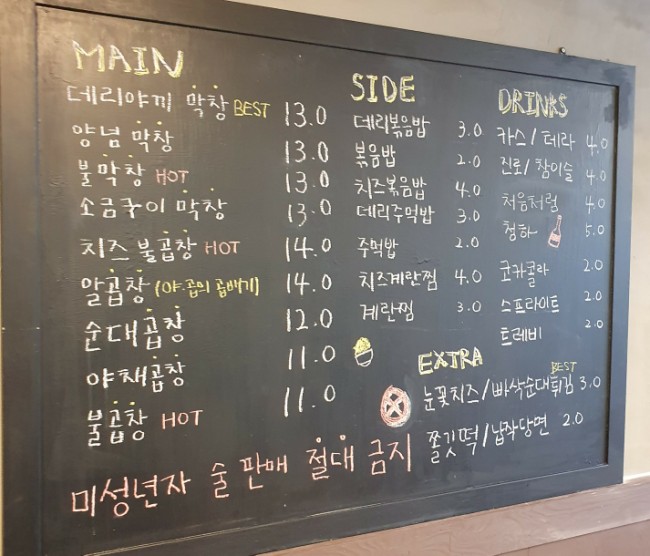 MAIN
데리야끼 막창 BEST 13.0
양념 막창 13.0
불막창 HOT 13.0
소금구이 막창 13.0
치즈 불곱창 HOT 14.0
알곱창 (야.곱의 곱빼기) 14.0
순대곱창 12.0
야채곱창 11.0
불곱창 HOT 11.0
SIDE
데리볶음밥 3.0
볶음밥 2.0
치즈볶음밥 4.0
데리주먹밥 3.0
주먹밥 2.0
치즈계란찜 4.0
계란찜 3.0
DRINKS
카스/테라 4.0
진로/참이슬 4.0
처음처럼 4.0
청하 5.0
코카콜라 2.0
스프라이트 2.0
트레비 2.0
EXTRA
눈꽃치즈/빠삭순대튀김 BEST 3.0
쫄깃떡/납작당면 2.0
미성년자 술 판매 절대 금지